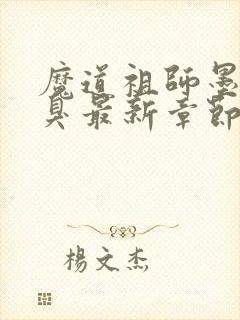 魔道祖師墨
臭最新章節
楊文杰